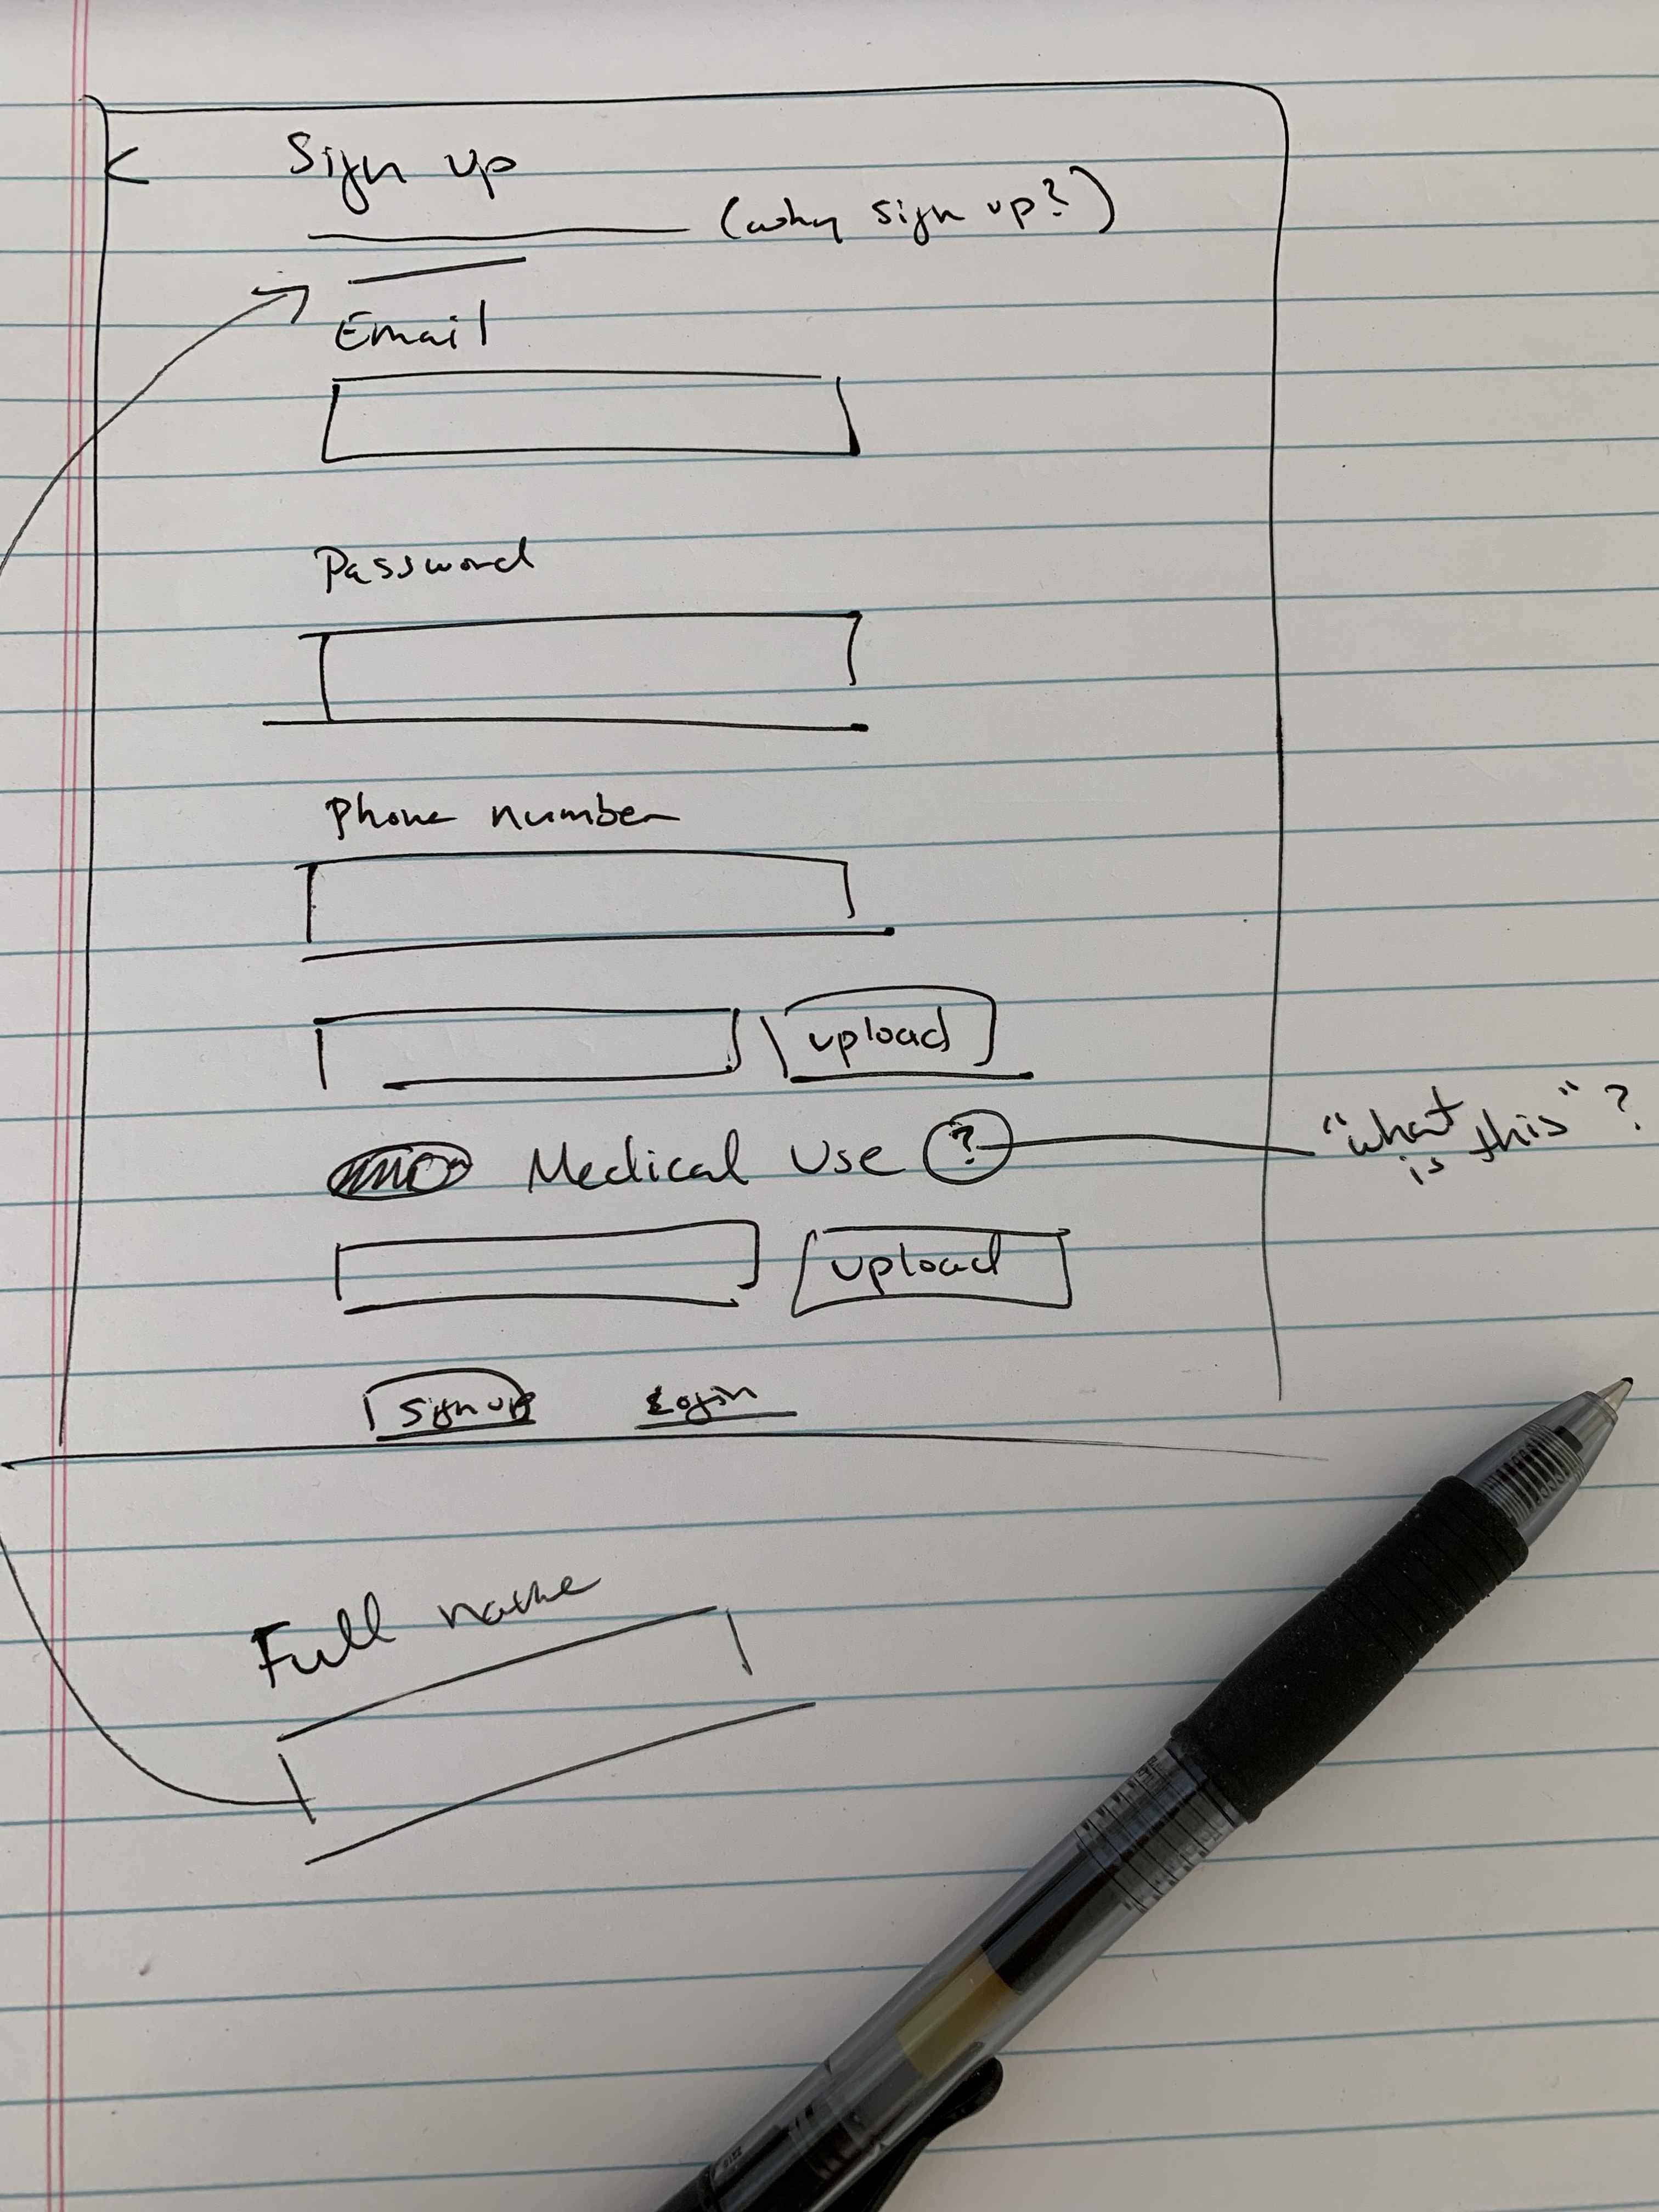 <
Sign up
(why sign up?)
Email
Password
Phone number
upload
Medical Use ?
"what is this"?
upload
Sign up Login
Full name